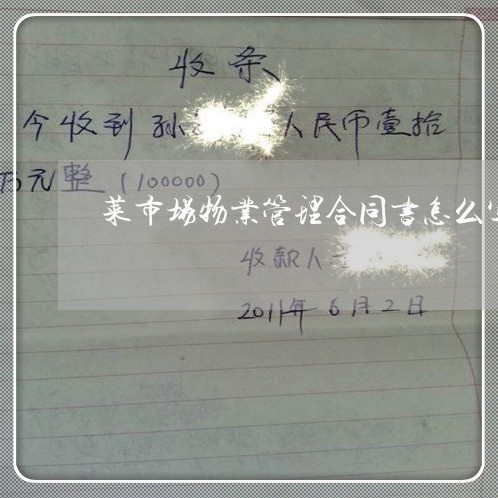 收条
今收到孙 人民币壹拾
万元整（100000）
菜市场物业管理合同书怎么
收款人
2011年6月2日